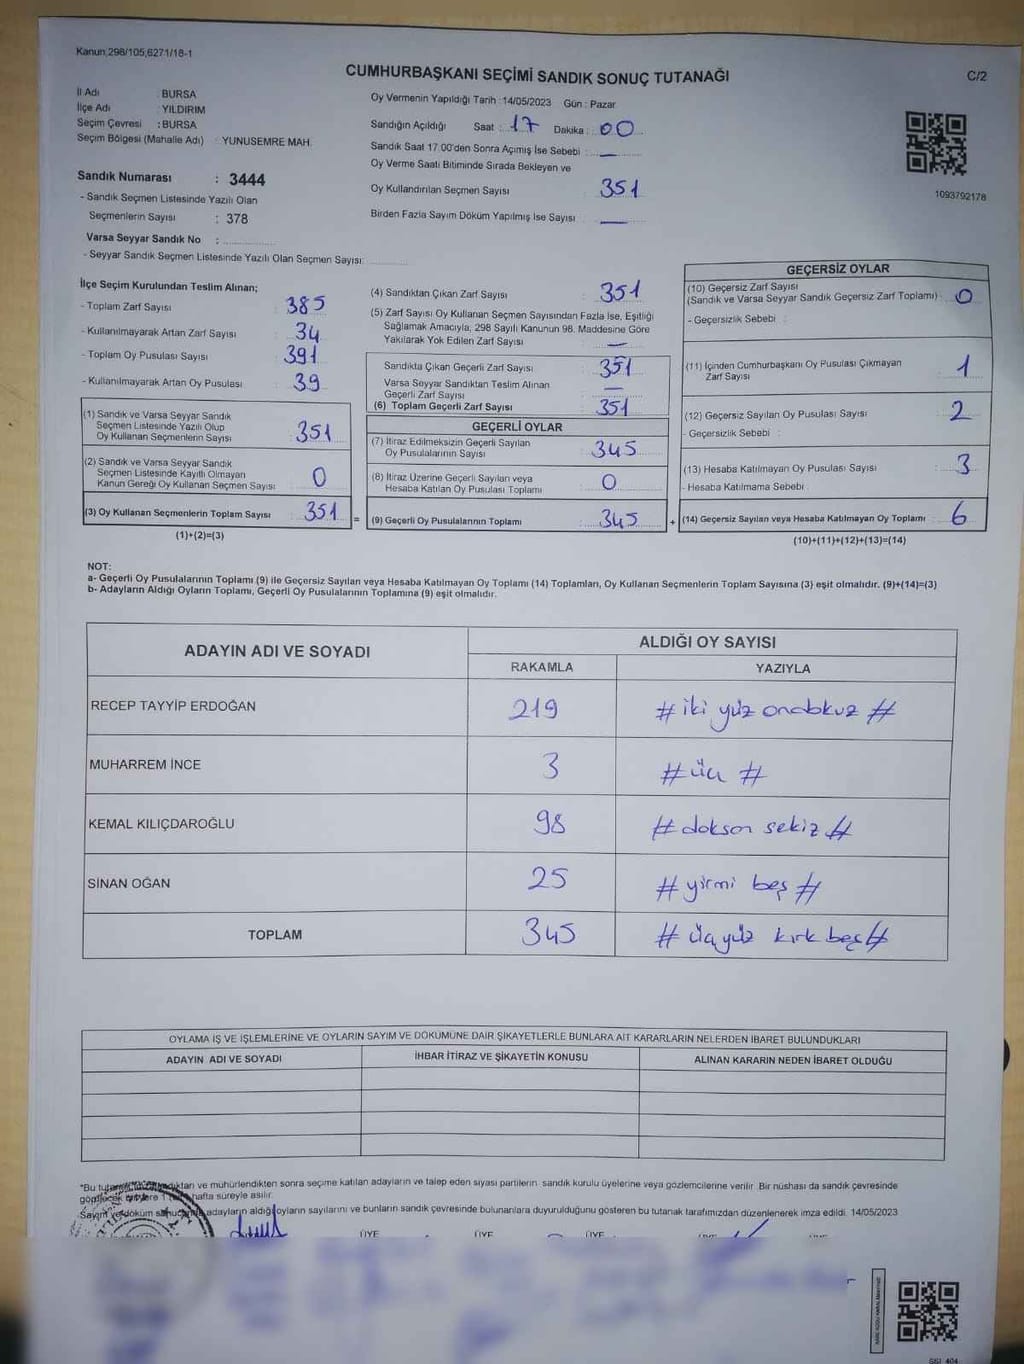 Kanun,298/105,6271/18-1
CUMHURBAŞKANI SEÇİMİ SANDIK SONUÇ TUTANAĞI
C/2
İl Adı : BURSA
İlçe Adı : YILDIRIM
Seçim Çevresi : BURSA
Seçim Bölgesi (Mahalle Adı) : YUNUSEMRE MAH.
Oy Vermenin Yapıldığı Tarih : 14/05/2023 Gün : Pazar
Sandığın Açıldığı Saat : 17 Dakika : 00
Sandık Saat 17.00'den Sonra Açımış İse Sebebi : —
Oy Verme Saati Bitiminde Sırada Bekleyen ve
Oy Kullandırılan Seçmen Sayısı 351
Birden Fazla Sayım Döküm Yapılmış İse Sayısı —
1093792178
Sandık Numarası : 3444
- Sandık Seçmen Listesinde Yazılı Olan
Seçmenlerin Sayısı : 378
Varsa Seyyar Sandık No :
- Seyyar Sandık Seçmen Listesinde Yazılı Olan Seçmen Sayısı:
İlçe Seçim Kurulundan Teslim Alınan;
- Toplam Zarf Sayısı : 385
- Kullanılmayarak Artan Zarf Sayısı : 34
- Toplam Oy Pusulası Sayısı : 391
- Kullanılmayarak Artan Oy Pusulası : 39
(1) Sandık ve Varsa Seyyar Sandık
Seçmen Listesinde Yazılı Olup
Oy Kullanan Seçmenlerin Sayısı : 351
(2) Sandık ve Varsa Seyyar Sandık
Seçmen Listesinde Kayıtlı Olmayan
Kanun Gereği Oy Kullanan Seçmen Sayısı : 0
(3) Oy Kullanan Seçmenlerin Toplam Sayısı : 351
(1)+(2)=(3)
(4) Sandıktan Çıkan Zarf Sayısı 351
(5) Zarf Sayısı Oy Kullanan Seçmen Sayısından Fazla İse, Eşitliği
Sağlamak Amacıyla, 298 Sayılı Kanunun 98. Maddesine Göre
Yakılarak Yok Edilen Zarf Sayısı : —
Sandıkta Çıkan Geçerli Zarf Sayısı : 351
Varsa Seyyar Sandıktan Teslim Alınan
Geçerli Zarf Sayısı : —
(6) Toplam Geçerli Zarf Sayısı : 351
GEÇERLİ OYLAR
(7) İtiraz Edilmeksizin Geçerli Sayılan
Oy Pusulalarının Sayısı : 345
(8) İtiraz Üzerine Geçerli Sayılan veya
Hesaba Katılan Oy Pusulası Toplamı : 0
= (9) Geçerli Oy Pusulalarının Toplamı : 345
GEÇERSİZ OYLAR
(10) Geçersiz Zarf Sayısı
(Sandık ve Varsa Seyyar Sandık Geçersiz Zarf Toplamı) : 0
- Geçersizlik Sebebi :
(11) İçinden Cumhurbaşkanı Oy Pusulası Çıkmayan
Zarf Sayısı : 1
(12) Geçersiz Sayılan Oy Pusulası Sayısı : 2
- Geçersizlik Sebebi :
(13) Hesaba Katılmayan Oy Pusulası Sayısı : 3
- Hesaba Katılmama Sebebi :
+ (14) Geçersiz Sayılan veya Hesaba Katılmayan Oy Toplamı : 6
(10)+(11)+(12)+(13)=(14)
NOT:
a- Geçerli Oy Pusulalarının Toplamı (9) ile Geçersiz Sayılan veya Hesaba Katılmayan Oy Toplamı (14) Toplamları, Oy Kullanan Seçmenlerin Toplam Sayısına (3) eşit olmalıdır. (9)+(14)=(3)
b- Adayların Aldığı Oyların Toplamı, Geçerli Oy Pusulalarının Toplamına (9) eşit olmalıdır.
ADAYIN ADI VE SOYADI ALDIĞI OY SAYISI
RAKAMLA YAZIYLA
RECEP TAYYİP ERDOĞAN 219 # iki yüz ondokuz #
MUHARREM İNCE 3 # üç #
KEMAL KILIÇDAROĞLU 98 # dokson sekiz #
SİNAN OĞAN 25 # yirmi beş #
TOPLAM 345 # üçyüz kırk beş #
OYLAMA İŞ VE İŞLEMLERİNE VE OYLARIN SAYIM VE DÖKÜMÜNE DAİR ŞİKAYETLERLE BUNLARA AİT KARARLARIN NELERDEN İBARET BULUNDUKLARI
ADAYIN ADI VE SOYADI İHBAR İTİRAZ VE ŞİKAYETİN KONUSU ALINAN KARARIN NEDEN İBARET OLDUĞU
*Bu ve mühürlendikten sonra seçime katılan adayların ve talep eden siyasi partilerin sandık kurulu üyelerine veya gözlemcilerine verilir. Bir nüshası da sandık çevresinde
hafta süreyle asılır.
Sayım ve döküm adayların aldığı oyların sayılarını ve bunların sandık çevresinde bulunanlara duyurulduğunu gösteren bu tutanak tarafımızdan düzenlenerek imza edildi. 14/05/2023
ÜYE ÜYE ÜYE